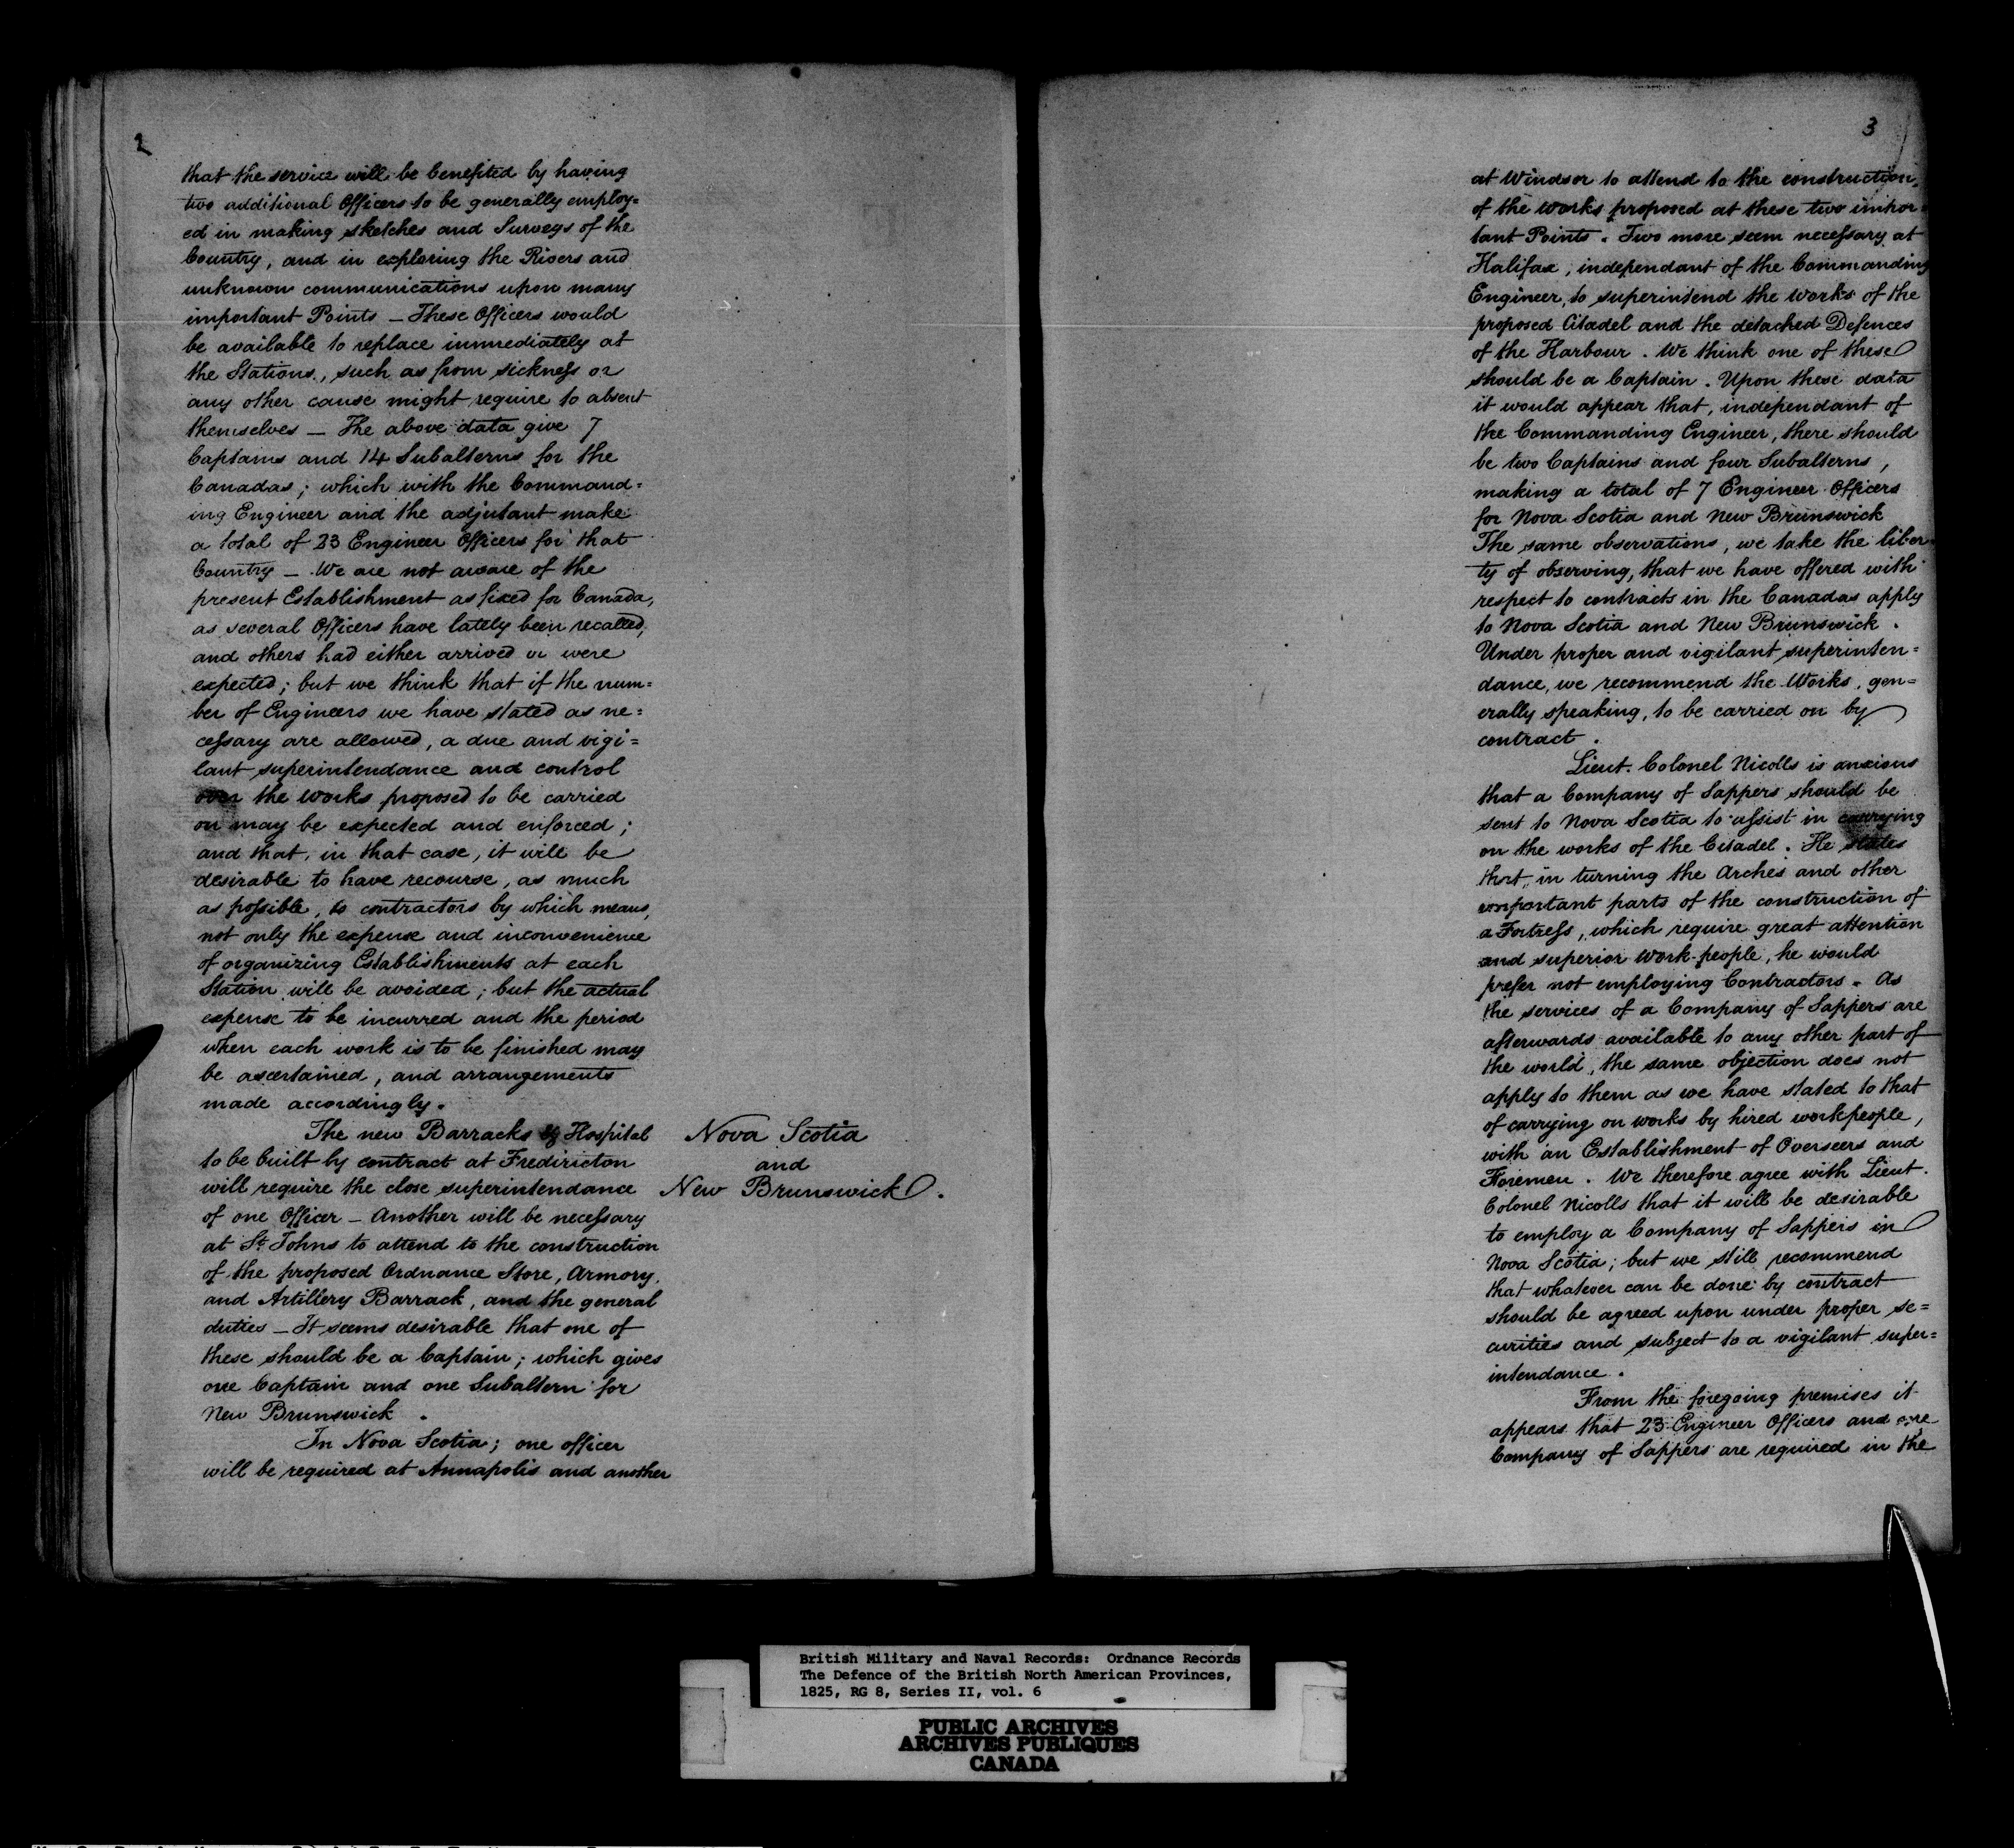 2
that the service will be benefited by having
two additional Officers to be generally employ=
ed in making sketches and Surveys of the
Country, and in exploring the Rivers and
unknown communications upon many
important Points — These Officers would
be available to replace immediately at
the Stations, such as from sickness or
any other cause might require to absent
themselves — The above data give 7
Captains and 14 Subalterns for the
Canadas; which with the Command=
ing Engineer and the adjutant make
a total of 23 Engineer Officers for that
Country — We are not aware of the
present Establishment as fixed for Canada,
as several Officers have lately been recalled,
and others had either arrived or were
expected; but we think that if the num=
ber of Engineers we have stated as ne=
cessary are allowed, a due and vigi=
lant superintendance and control
over the works proposed to be carried
on may be expected and enforced;
and that, in that case, it will be
desirable to have recourse, as much
as possible, to contractors by which means,
not only the expense and inconvenience
of organizing Establishments at each
Station will be avoided; but the actual
expense to be incurred and the period
when each work is to be finished may
be ascertained, and arrangements
made accordingly.
The new Barracks & Hospital
to be built by contract at Frediricton
will require the close superintendance
of one Officer — Another will be necessary
at St. Johns to attend to the construction
of the proposed Ordnance Store, Armory,
and Artillery Barrack, and the general
duties — It seems desirable that one of
these should be a Captain; which gives
one Captain and one Subaltern for
New Brunswick.
In Nova Scotia; one officer
will be required at Annapolis and another
Nova Scotia
and
New Brunswick.
3
at Windsor to attend to the construction
of the works proposed at these two impor=
tant Points. Two more seem necessary at
Halifax, independant of the Commanding
Engineer, to superintend the works of the
proposed Citadel and the detached Defences
of the Harbour. We think one of these
should be a Captain. Upon these data
it would appear that, independant of
the Commanding Engineer, there should
be two Captains and four Subalterns,
making a total of 7 Engineer Officers
for Nova Scotia and New Brunswick
The same observations, we take the liber=
ty of observing, that we have offered with
respect to contracts in the Canadas apply
to Nova Scotia and New Brunswick.
Under proper and vigilant superinten=
dance, we recommend the Works, gen=
erally speaking, to be carried on by
contract.
Lieut. Colonel Nicolls is anxious
that a Company of Sappers should be
sent to Nova Scotia to assist in carrying
on the works of the Citadel. He states
that, in turning the Arches and other
important parts of the construction of
a Fortress, which require great attention
and superior work-people, he would
prefer not employing Contractors. As
the services of a Company of Sappers are
afterwards available to any other part of
the world, the same objection does not
apply to them as we have stated to that
of carrying on works by hired workpeople,
with an Establishment of Overseers and
Foremen. We therefore agree with Lieut.
Colonel Nicolls that it will be desirable
to employ a Company of Sappers in
Nova Scotia; but we still recommend
that whatever can be done by contract
should be agreed upon under proper se=
curities and subject to a vigilant super=
intendance.
From the foregoing premises it
appears that 23 Engineer Officers and one
Company of Sappers are required in the
British Military and Naval Records: Ordnance Records
The Defence of the British North American Provinces,
1825, RG 8, Series II, vol. 6
PUBLIC ARCHIVES
ARCHIVES PUBLIQUES
CANADA